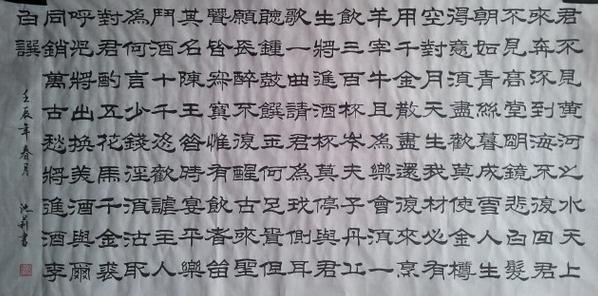 君不見黃河之水天上
來奔流到海不復回君
不見高堂明鏡悲白髮
朝如青絲暮成雪人生
得意須盡歡莫使金樽
空對月天生我材必有
用千金散盡還復來烹
羊宰牛且爲樂會須一
飲三百杯岑夫子丹丘
生將進酒杯莫停與君
歌一曲請君爲我側耳
聽鍾鼓饌玉何足貴但
願長醉不復醒古來聖
賢皆寂寞惟有飲者留
其名陳王昔時宴平樂
鬥酒十千恣歡謔主人
爲何言少錢徑須沽取
對君酌五花馬千金裘
呼兒將出換美酒與爾
同銷萬古愁將進酒李
白譔
壬辰年春月 池莉書